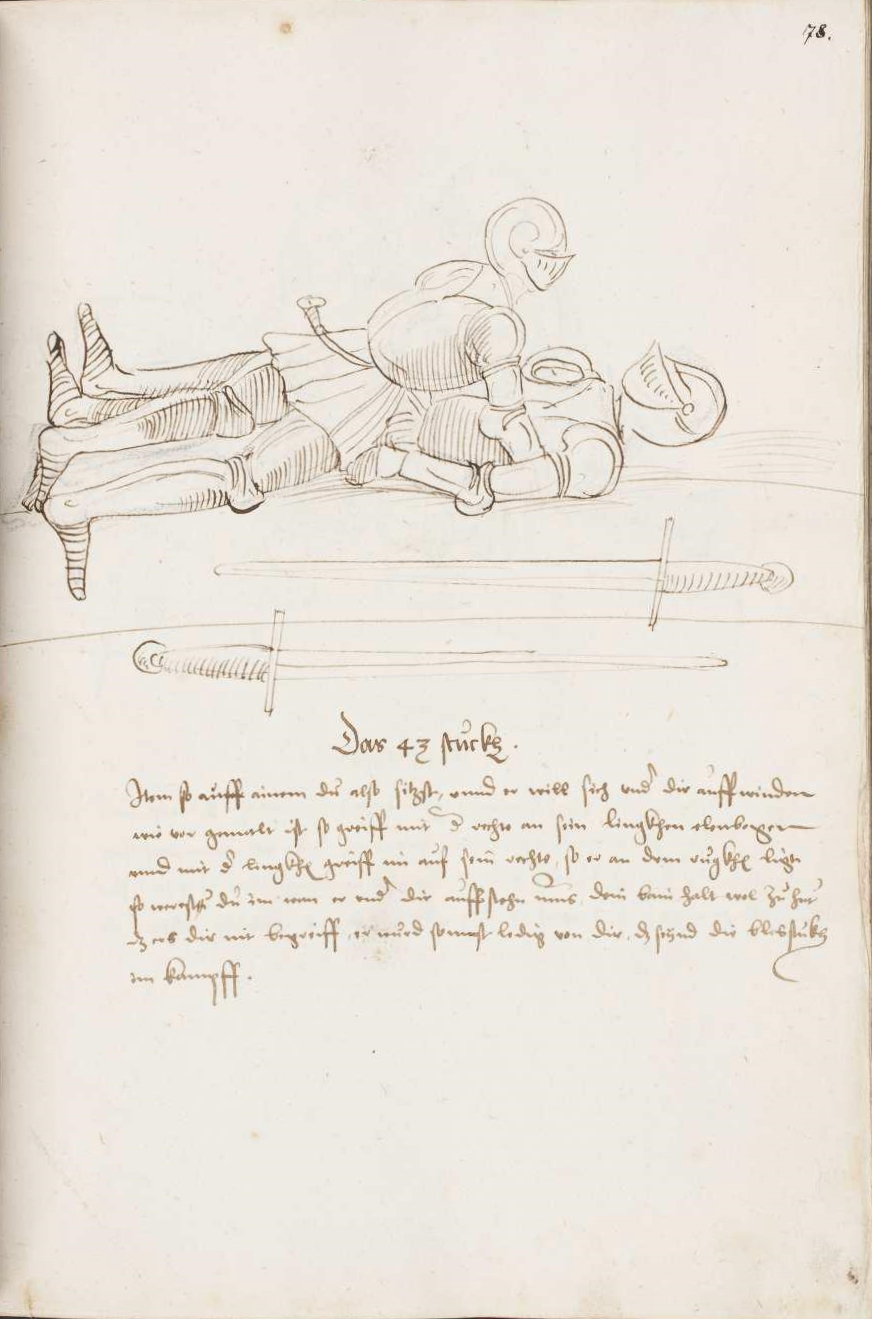 78.
Das 43 stuckh.
Item so auff ainem du also sitzst, vnnd er will sich vnd dir auffwinden
wie vor gemalt ist so greiff mit d rechte an sein lingkhen elenbogen
vnnd mit d lingkh greiff im auf sein rechte, so er an dem rugkh ligt
so werest du im wan er vnd dir auffstehn mus, dein bain halt wol zu
er dir nit begreiff, er wurd sonnst ledig von dir, dz seynd die stukh
im kampff.